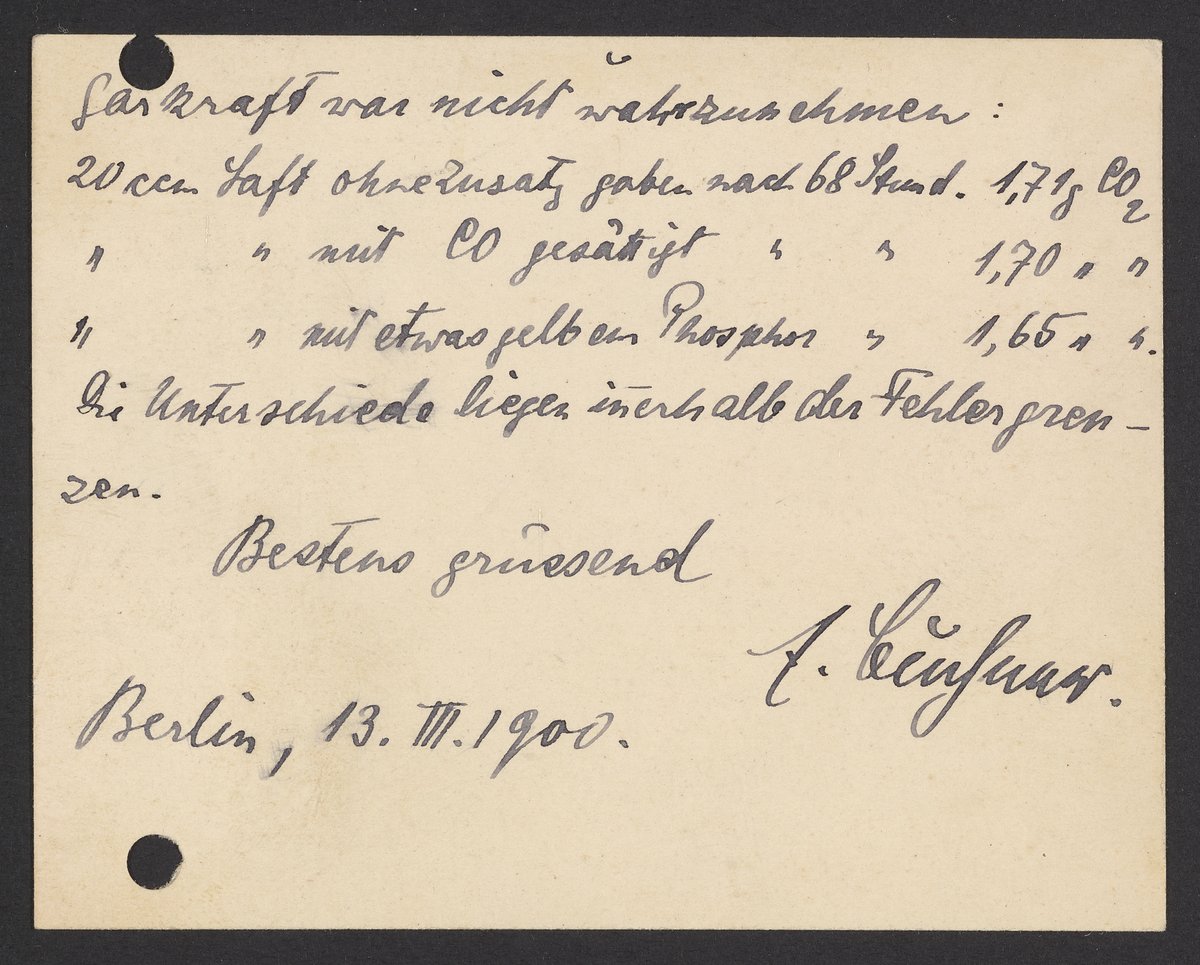 Gärkraft war nicht wahrzunehmen :
20 ccm Saft ohne Zusatz gaben nach 68 Stund. 1,71 g CO₂
" " mit CO gesättigt " " 1,70 " "
" " mit etwas gelbem Phosphor " 1,65 " ".
Die Unterschiede liegen in̄erhalb der Fehlergren-
zen.
Bestens grüssend
E. Buchner.
Berlin, 13. III. 1900.